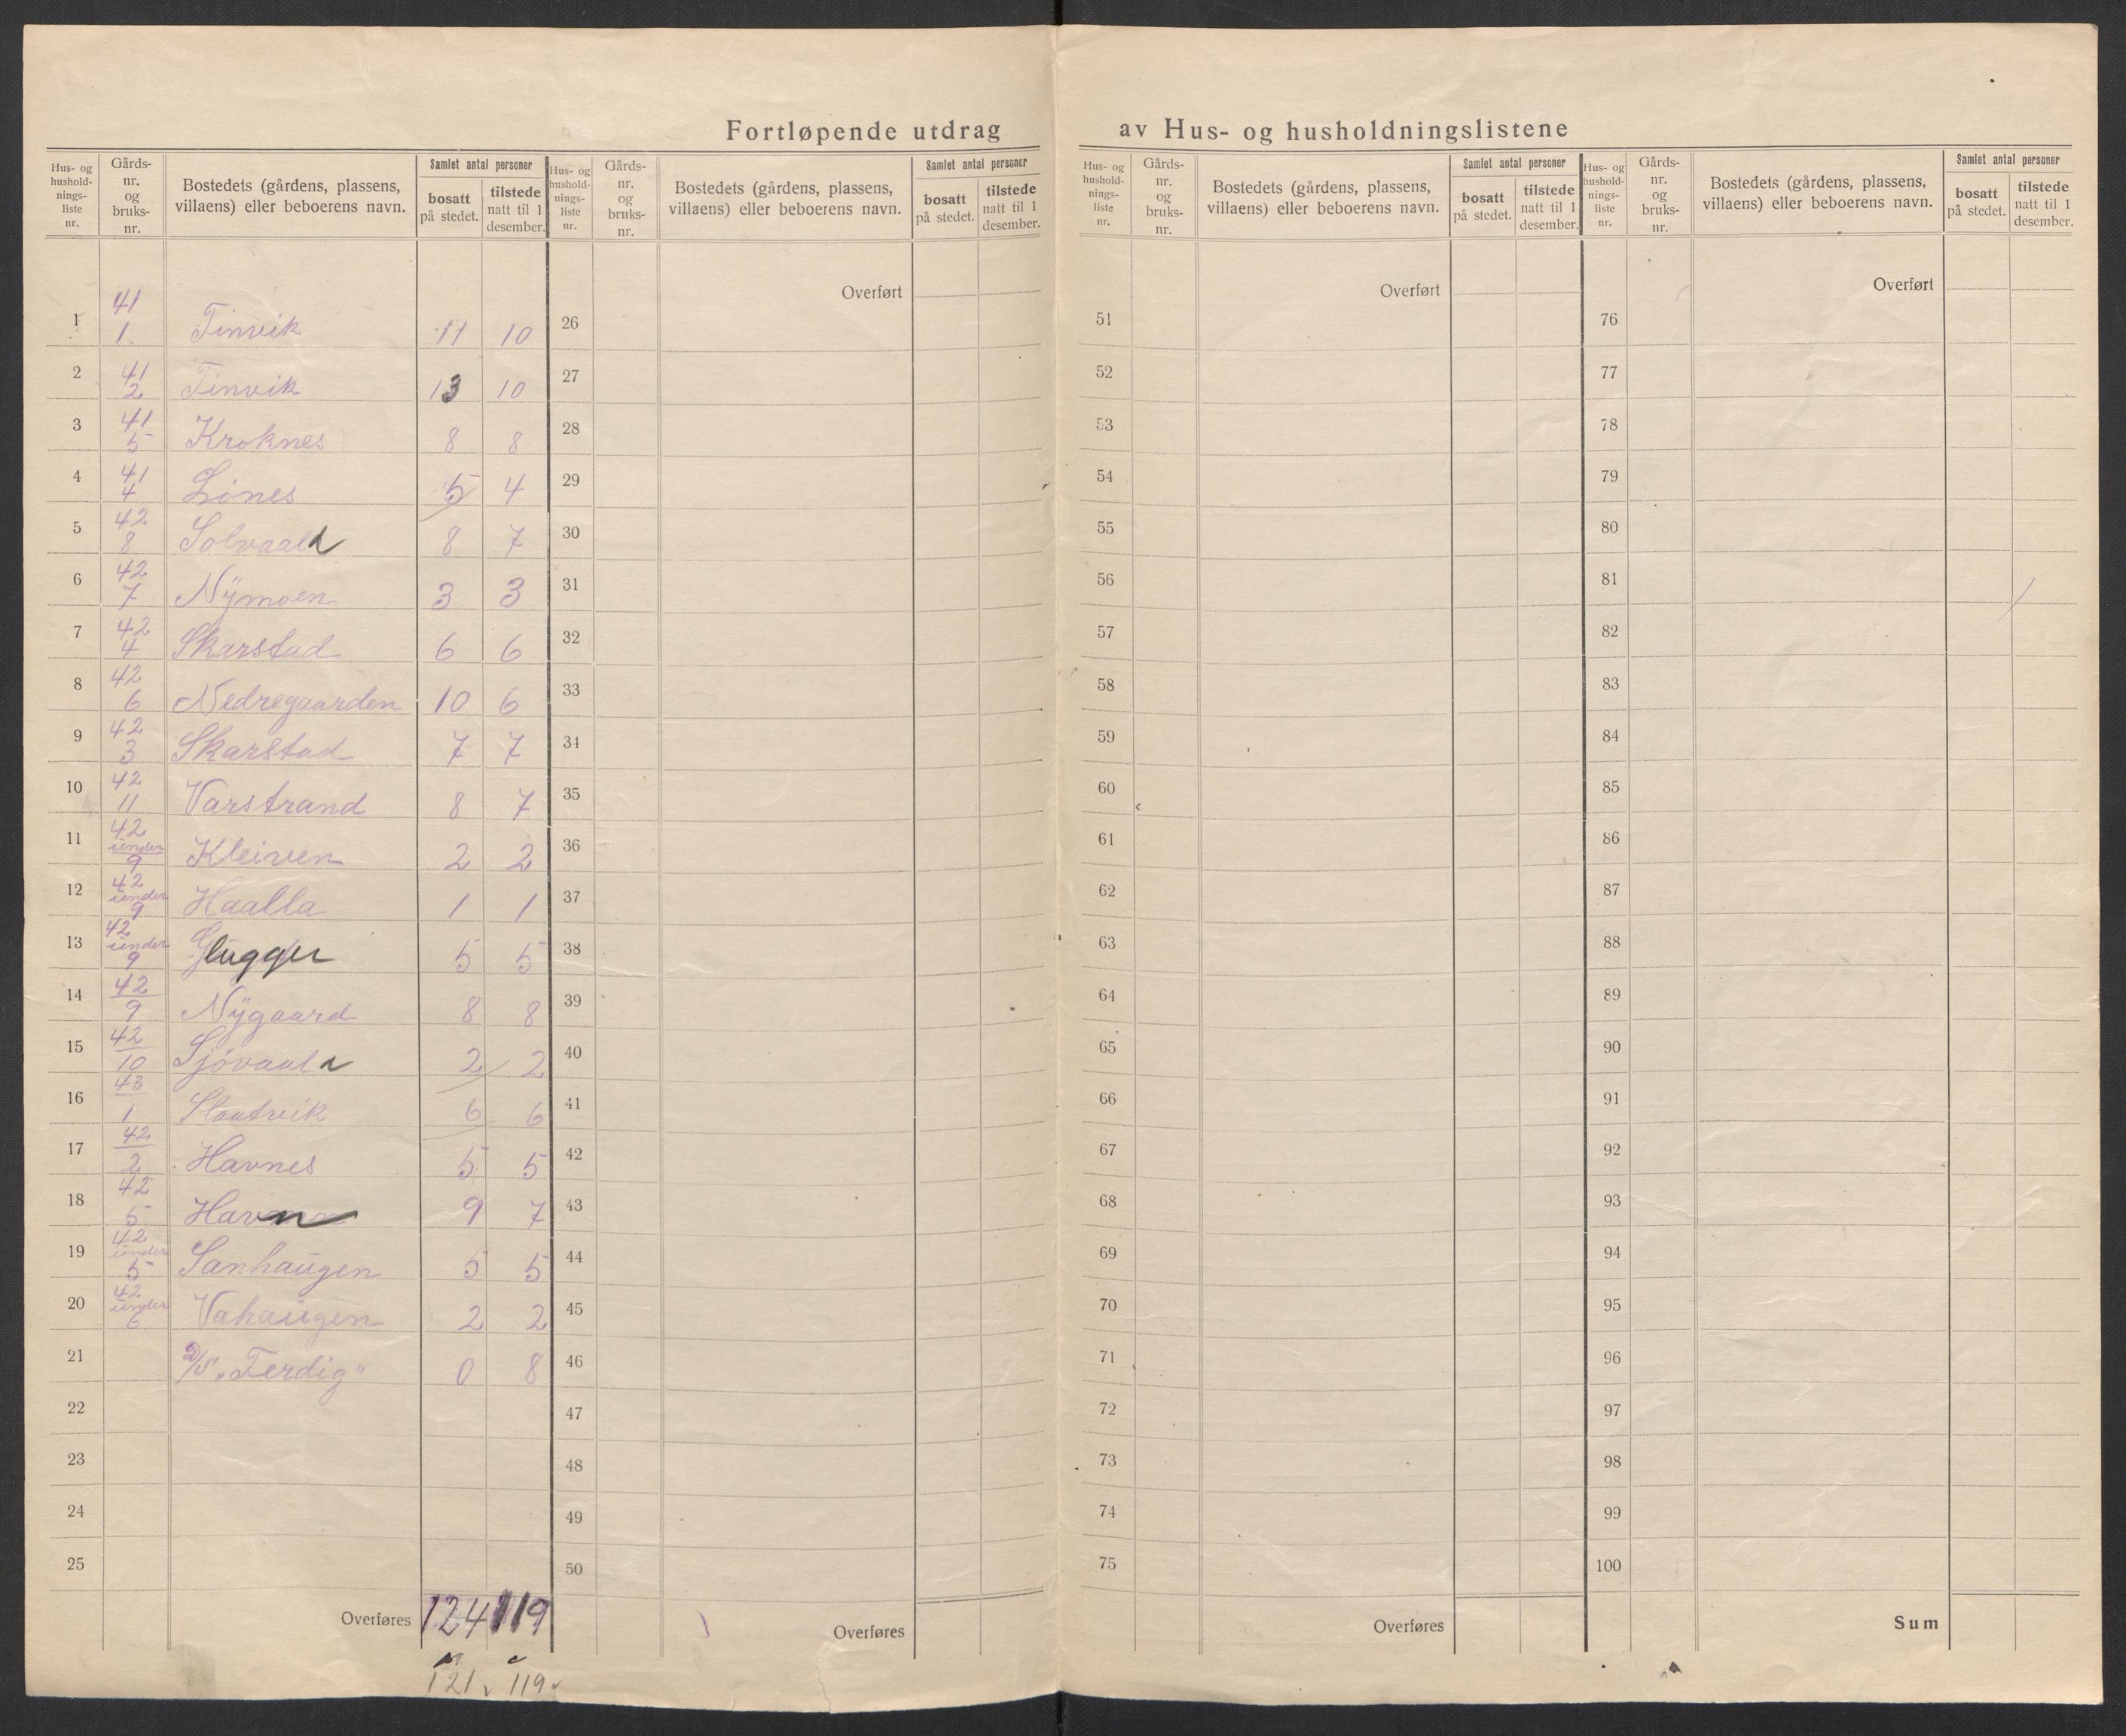 Fortløpende utdrag av Hus- og husholdningslistene
Hus- og hushold-nings-liste nr. Gårds-nr. og bruks-nr. Bostedets (gårdens, plassens, villaens) eller beboerens navn. Samlet antal personer bosatt på stedet. tilstede natt til 1 desember.
Hus- og hushold-nings-liste nr. Gårds-nr. og bruks-nr. Bostedets (gårdens, plassens, villaens) eller beboerens navn. Samlet antal personer bosatt på stedet. tilstede natt til 1 desember.
Hus- og hushold-nings-liste nr. Gårds-nr. og bruks-nr. Bostedets (gårdens, plassens, villaens) eller beboerens navn. Samlet antal personer bosatt på stedet. tilstede natt til 1 desember.
Hus- og hushold-nings-liste nr. Gårds-nr. og bruks-nr. Bostedets (gårdens, plassens, villaens) eller beboerens navn. Samlet antal personer bosatt på stedet. tilstede natt til 1 desember.
1 41/1 Finvik 11 10
2 41/2 Finvik 13 10
3 41/5 Kroknes 8 8
4 41/4 Lönes 5 4
5 42/8 Solvaal 8 7
6 42/7 Nÿmoen 3 3
7 42/4 Skarstad 6 6
8 42/6 Nedregaarden 10 6
9 42/3 Skarstad 7 7
10 42/11 Varstrand 8 7
11 42 under 9 Kleiven 2 2
12 42 under 9 Haalla 1 1
13 42 under 9 Glugger 5 5
14 42/9 Nÿgaard 8 8
15 42/10 Sjövaal 2 2
16 43/1 Slaatvik 6 6
17 42/2 Havnes 5 5
18 42/5 Havn 9 7
19 42 under 5 Sanhaugen 5 5
20 42 under 6 Vahaugen 2 2
21 D/S "Ferdig" 0 8
22
23
24
25
Overføres 124 119
121 119
Overført
26
27
28
29
30
31
32
33
34
35
36
37
38
39
40
41
42
43
44
45
46
47
48
49
50
Overføres
Overført
51
52
53
54
55
56
57
58
59
60
61
62
63
64
65
66
67
68
69
70
71
72
73
74
75
Overføres
Overført
76
77
78
79
80
81
82
83
84
85
86
87
88
89
90
91
92
93
94
95
96
97
98
99
100
Sum